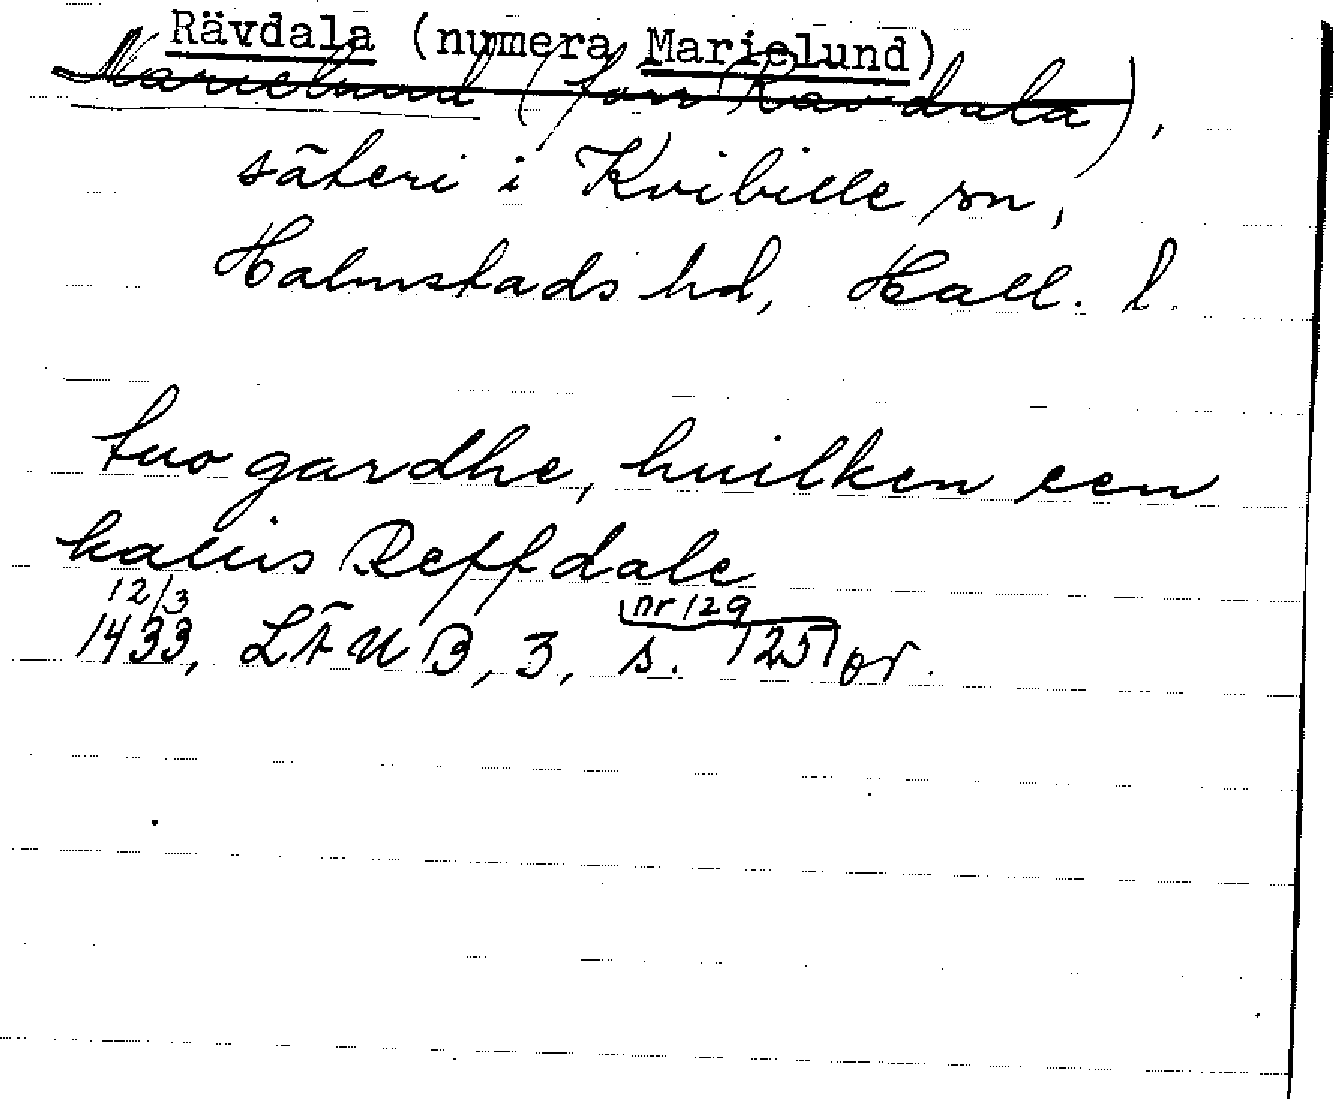 Rävdala (numera Marielund)
Marielund (förr Rävdala),
säteri i Kvibille sn,
Halmstads hd, Hall. l.
tuo gardhe, huilken een
kallis Reffdale
12/3 nr 129
1433, LÄUB, 3, s. 125 or.